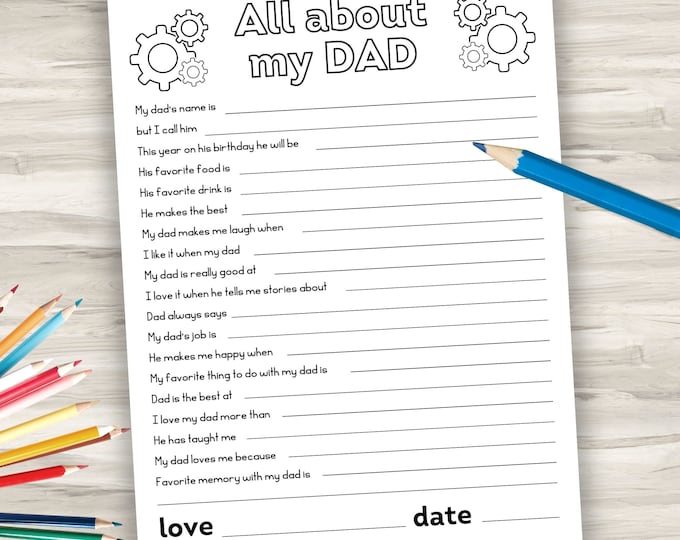 All about
my DAD
My dad's name is
but I call him
This year on his birthday he will be
His favorite food is
His favorite drink is
He makes the best
My dad makes me laugh when
I like it when my dad
My dad is really good at
I love it when he tells me stories about
Dad always says
My dad's job is
He makes me happy when
My favorite thing to do with my dad is
Dad is the best at
I love my dad more than
He has taught me
My dad loves me because
Favorite memory with my dad is
love date